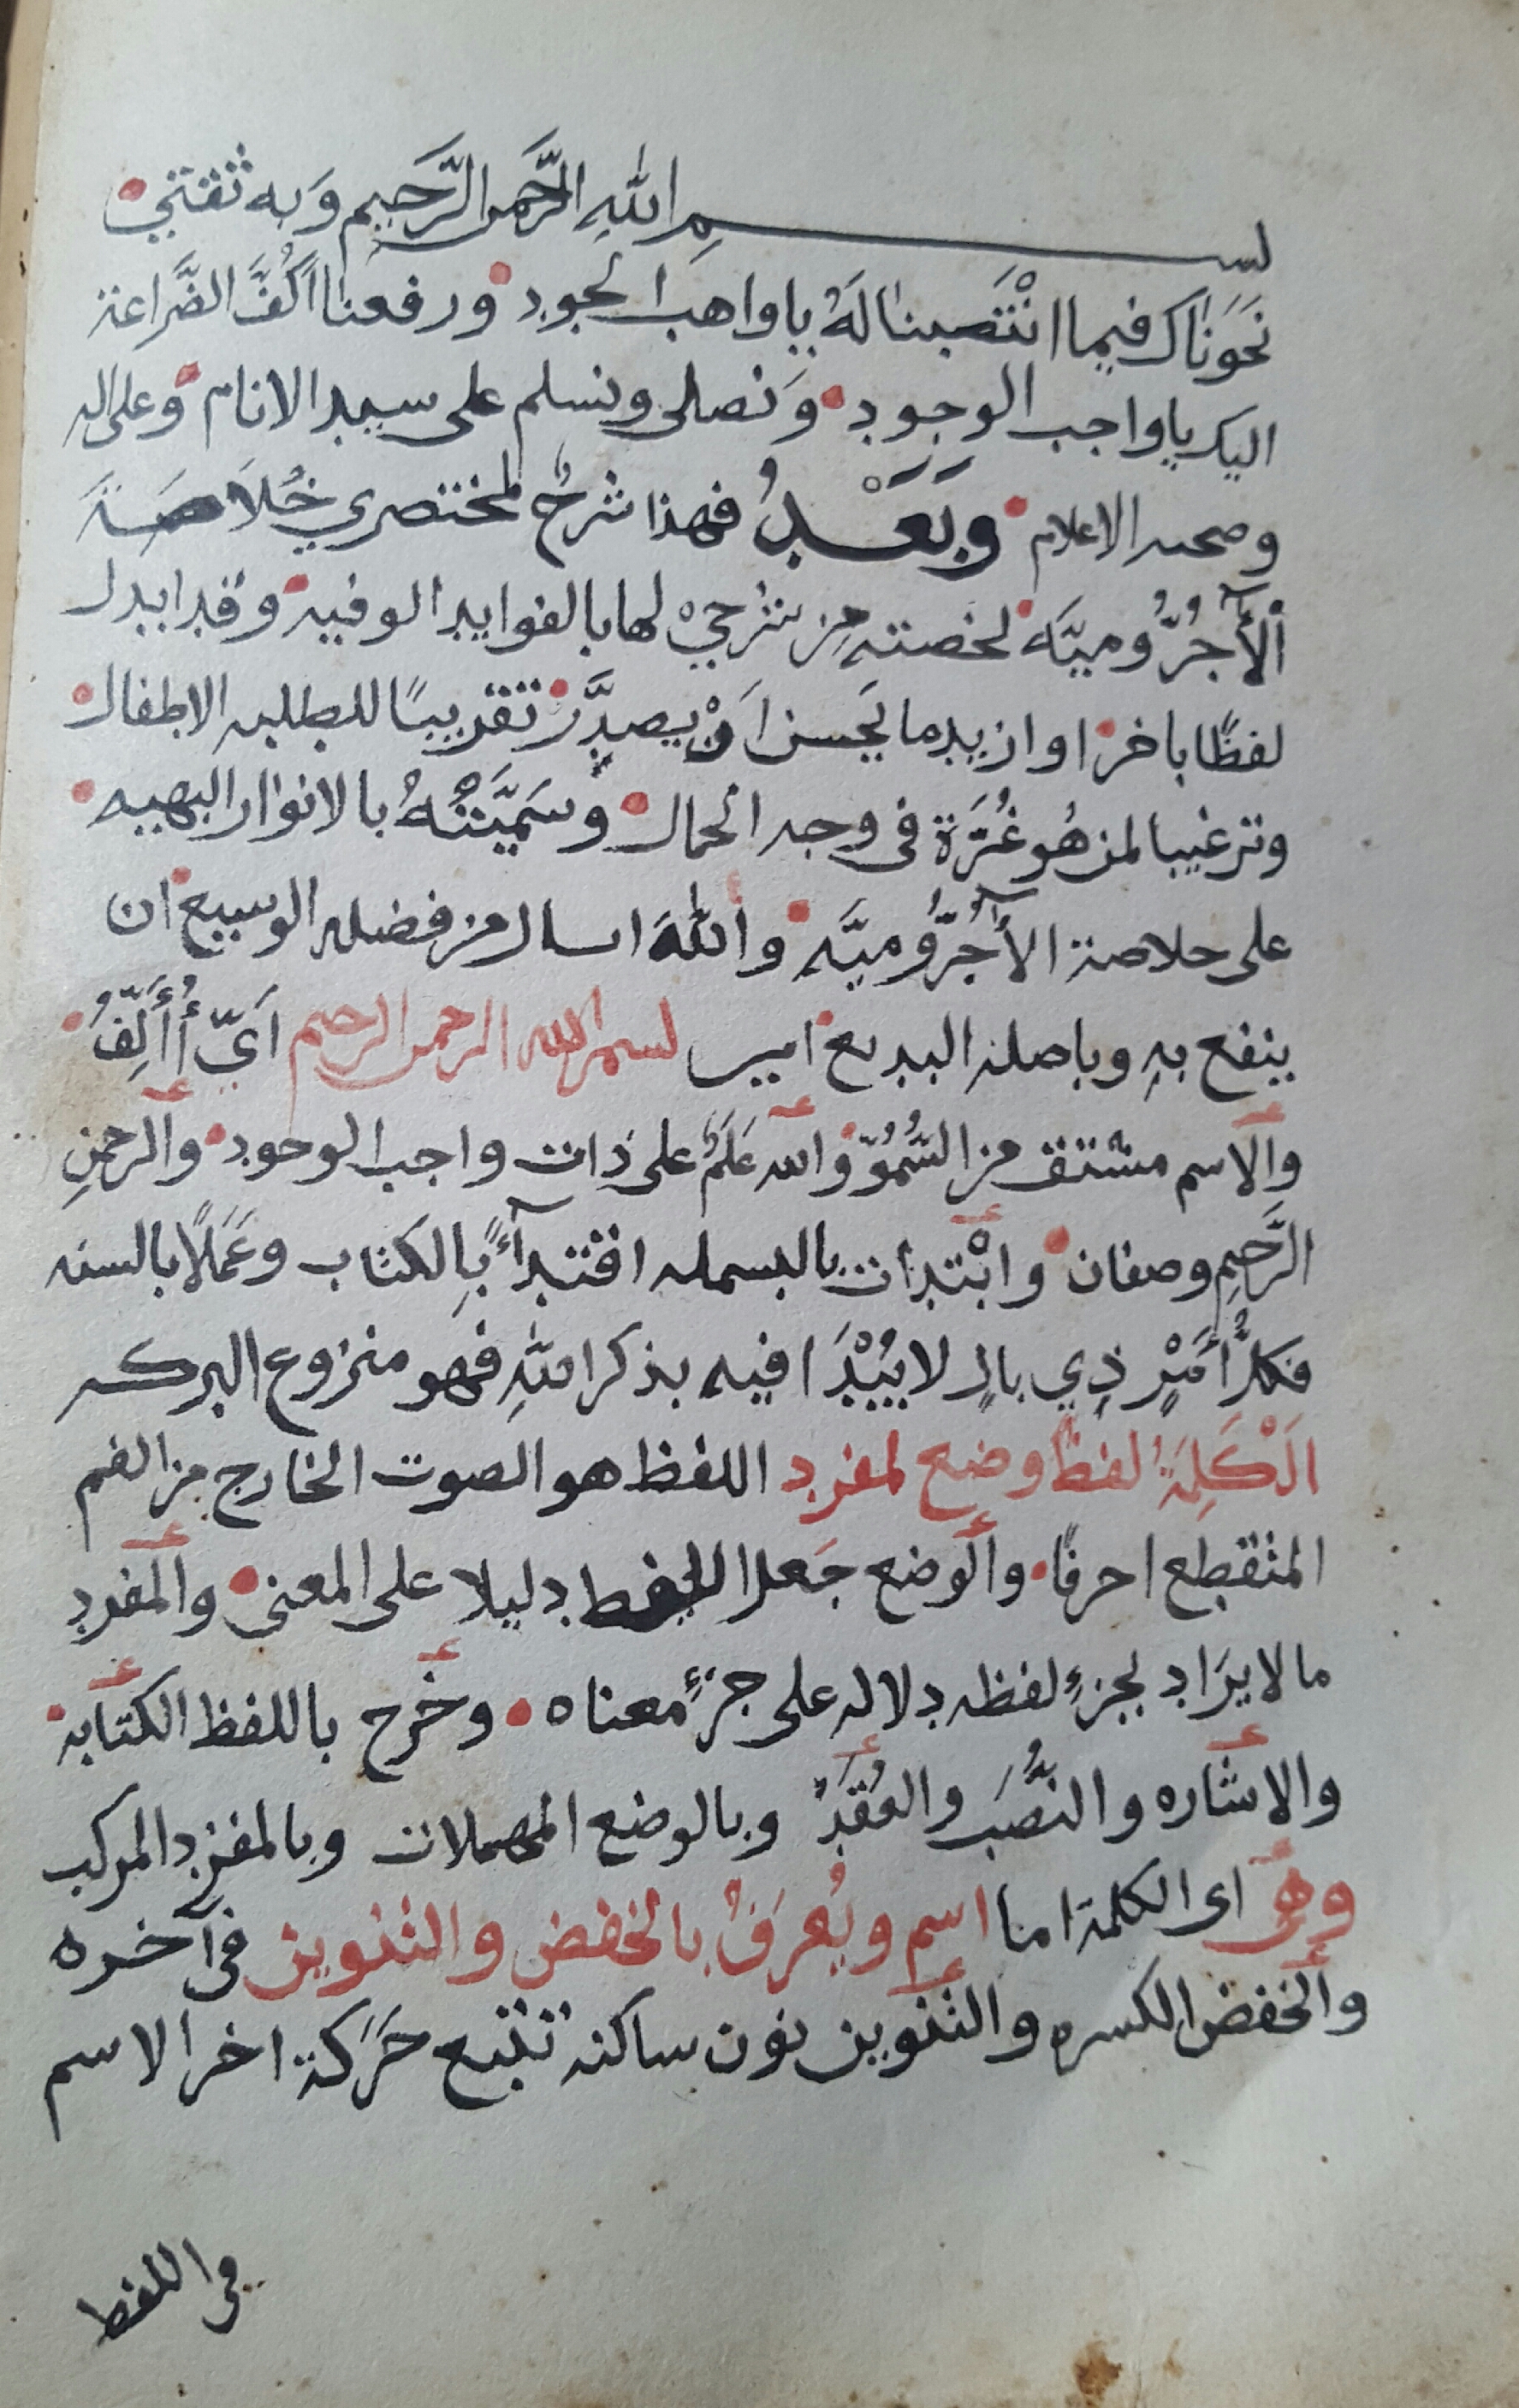 بسم اللهِ الرَّحمن الرَّحيم وَبه ثقتي
نَحَوناك فيما انْتَصبنا لَهُ يا واهب الجود ورفعنا اَكُفَّ الضَّراعة
اليك يا واجب الوجود وَنصلى ونسلم على سيد الانام وعلى اله
وصحبه الاعلام وبَعْدُ فهذا شرحٌ لمختصري خُلاَصَة
ألآجُرُّوميَّه لخصته مِن شرحيْ لها بالفوايد الوفيه وقد ابدل
لفظًا باخر او ازيد ما يَحسن اَنْ يصدَّر تقريبًا للطلبه الاطفال
وترغيبا لمن هُو غُرَّة فى وجه الجمال وسَمَّيْتْهُ بالانوار البهيه
على خلاصة الآجُرُّوميَّه واللهَ اسال من فضله الوسيع ان
ينفع بهِ وباصله البديع امين لسم الله الرحمن الرحيم اَيّ أُأَلِّفُ
والاسم مشتق من السُّمُوّ والله عَلَمٌ على ذات واجب الوجود والرحمنِ
الرَّحيمِ وصفان وابْتدات بالبسمله اقتدآءً بِالكتاب وعَمَلاً بالسنه
فكلُّ أَمْرٍ ذِي بالٍ لا يُبْدَا فيه بذكر اللهِ فهو منزوع البركه
اَلْكَلِمَةُ لفظٌ وضع لمفرد اللفظ هو الصوت الخارج من الفم
المتقطع احرفًا والوضع جَعل اللفظ دليلا على المعنى والمفرد
ما لا يرَاد بجزءٍ لفظه دلاله على جزءٍ معناه وخرج باللفظ الكتابه
والاشاره والنُّصَب والعُقَدُ وبالوضع المهملات وبالمفرد المركب
وهى اى الكلمة اما اسم ويُعرَفُ بالخفض والتنوين فى آخره
والخفض الكسره والتنوين نون ساكنه تتبع حَرَكة اخر الاسم
فى اللفظ